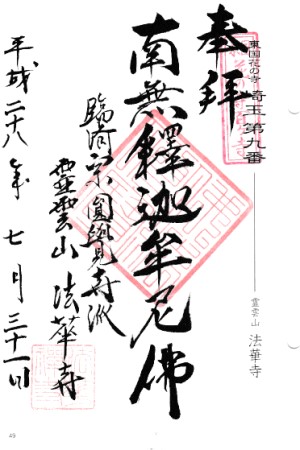 東国花の寺 埼玉 第九番
霊雲山 法華寺
奉拝
南無釋迦牟尼佛
臨済宗圓覺寺派
靈雲山 法華寺
平成二十八年 七月 三十一日
49